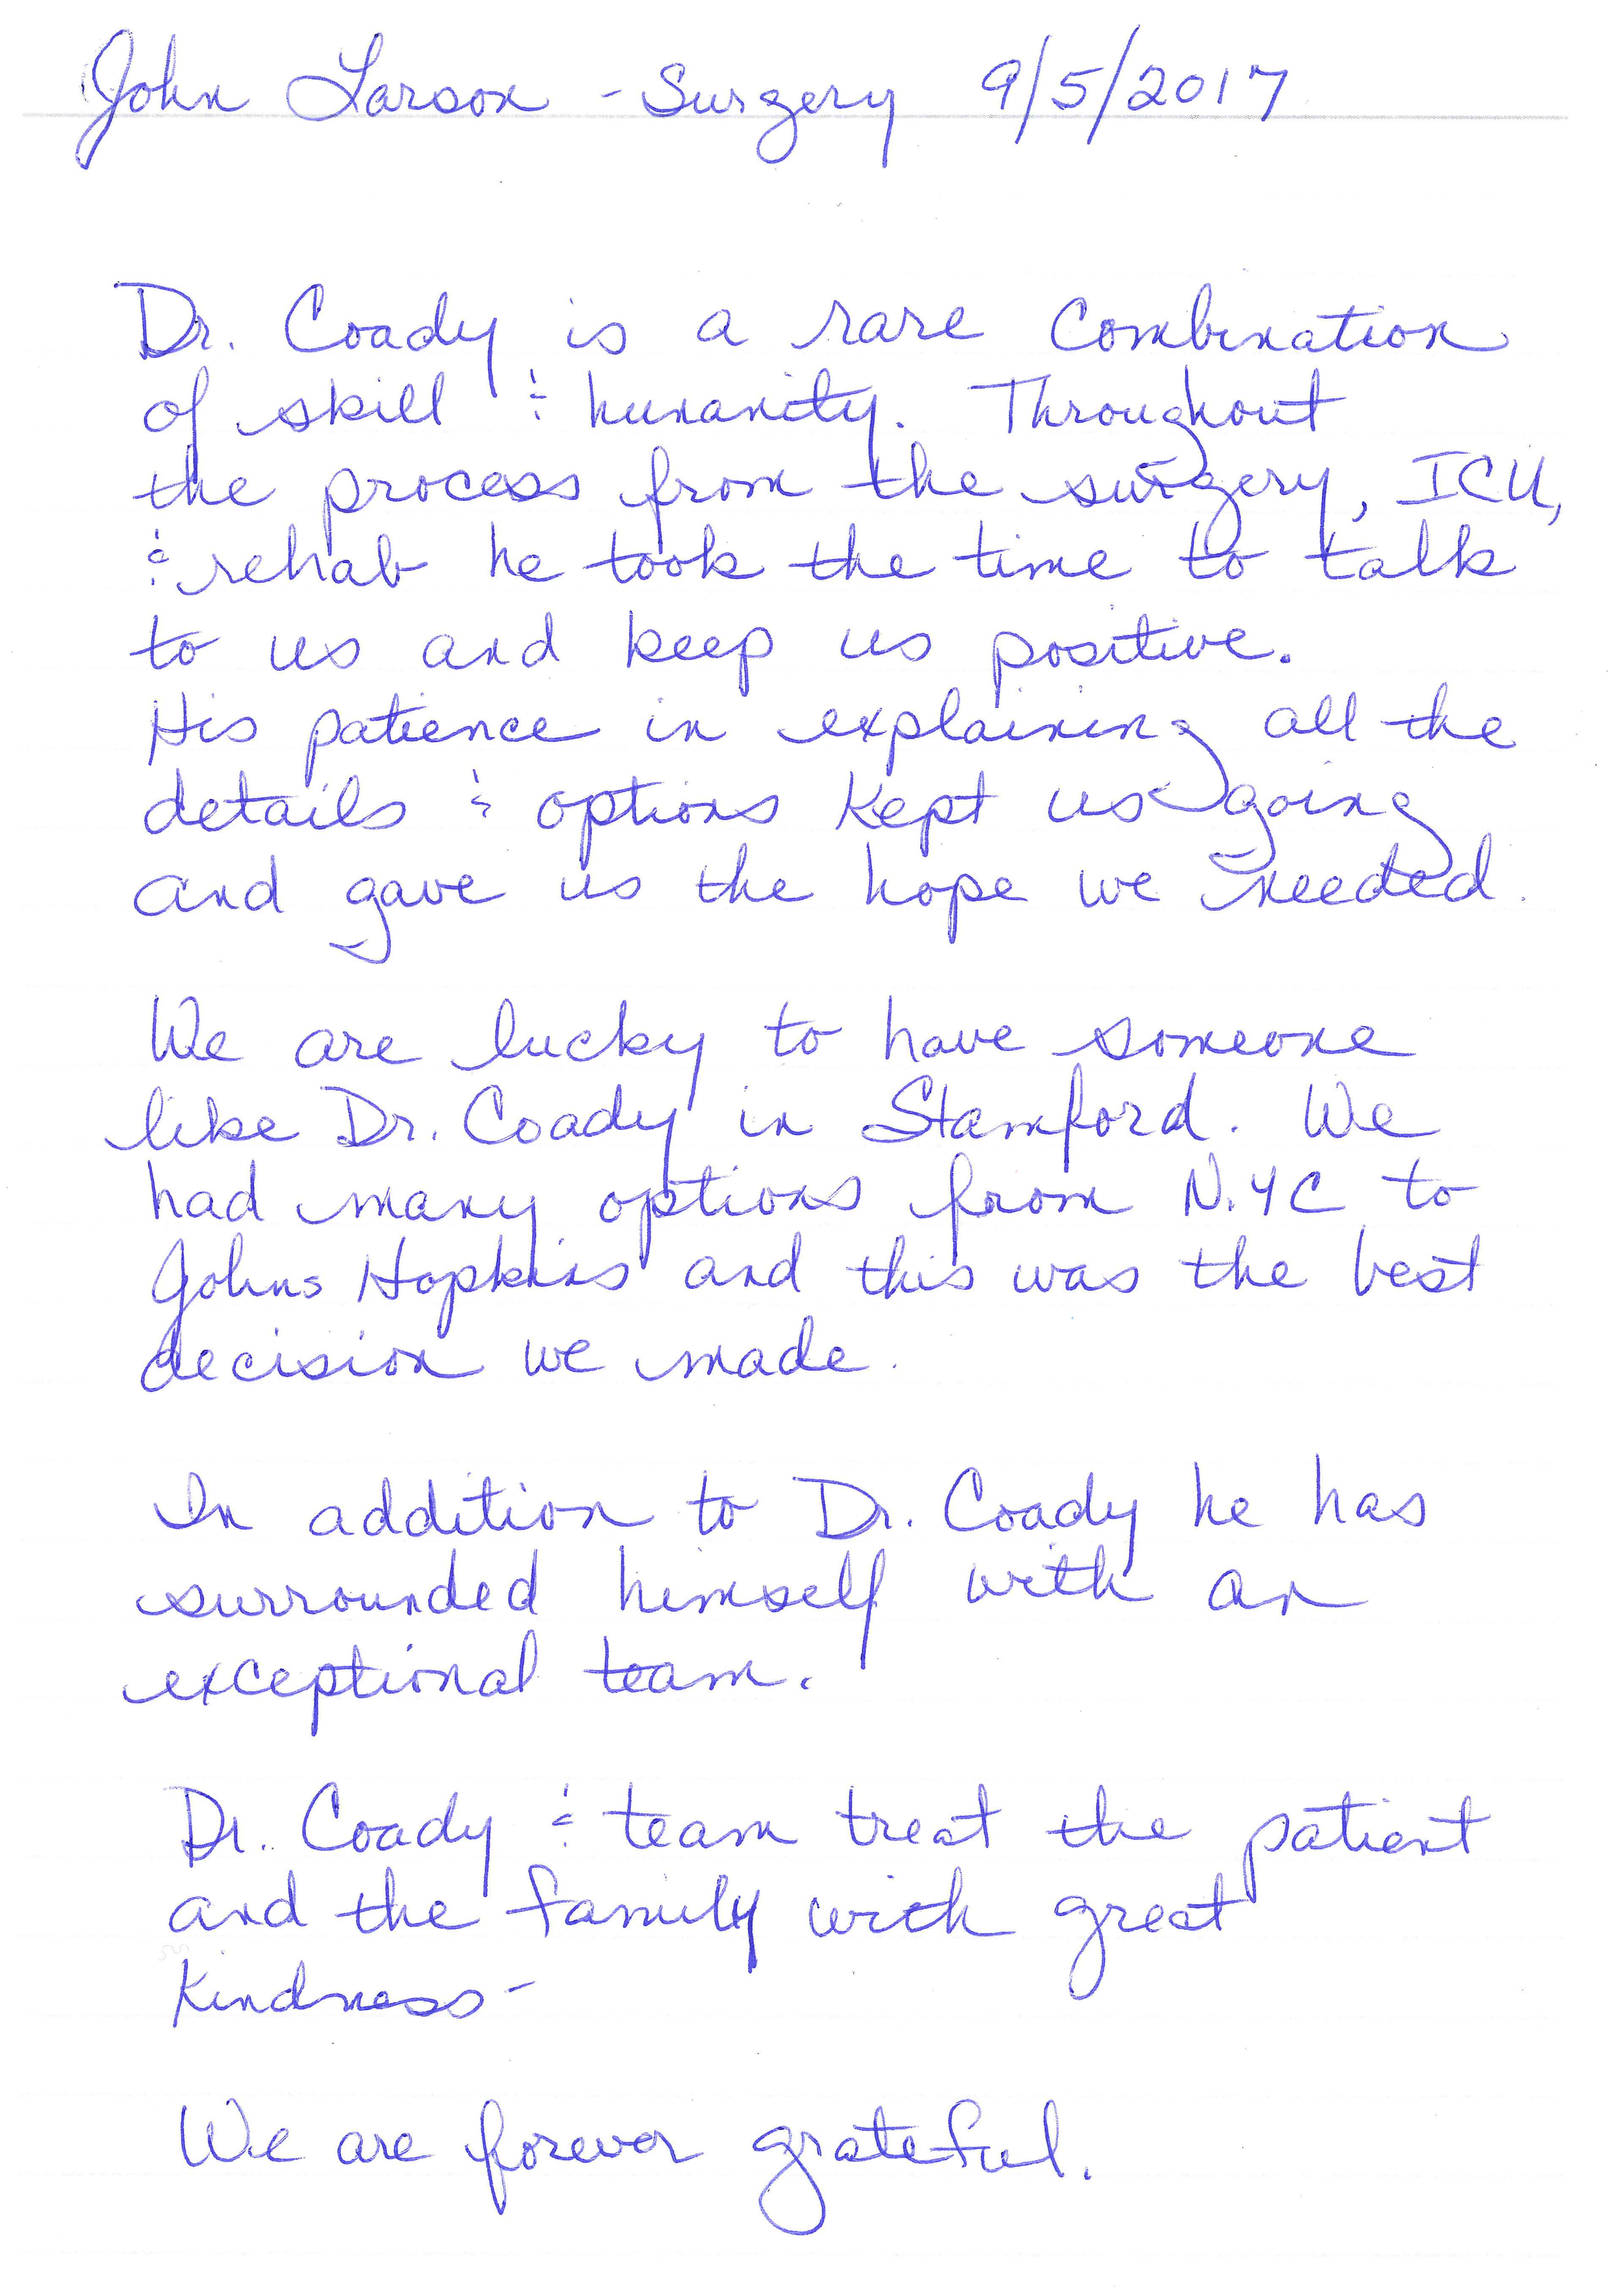 John Larson - Surgery 9/5/2017
Dr. Coady is a rare combination
of skill & humanity. Throughout
the process from the surgery, ICU,
& rehab he took the time to talk
to us and keep us positive.
His patience in explaining all the
details & options kept us going
and gave us the hope we needed.
We are lucky to have someone
like Dr. Coady in Stamford. We
had many options from N.YC to
Johns Hopkins and this was the best
decision we made.
In addition to Dr. Coady he has
surrounded himself with an
exceptional team.
Dr. Coady & team treat the patient
and the family with great
kindness-
We are forever grateful.